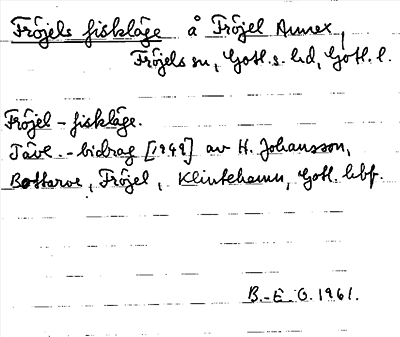 Fröjels fiskläge å Fröjel Annex,
Fröjels sn, Gotl. s. hd, Gotl. l.
Fröjel - fiskläge.
Tävl. - bidrag [1949] av H. Johansson,
Bottarve, Fröjel, Klintehamn, Gotl.
B.-E. O. 1961.